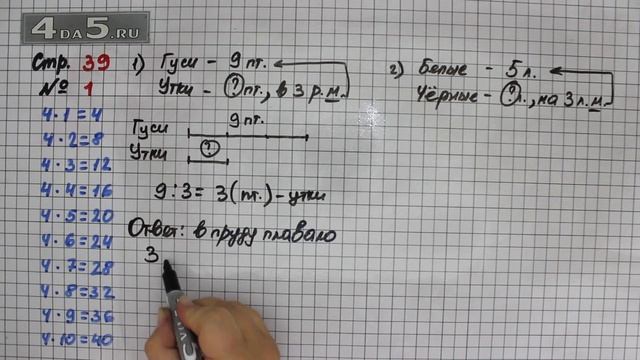 4DA5.RU
Стр. 39
№ 1
4·1=4
4·2=8
4·3=12
4·4=16
4·5=20
4·6=24
4·7=28
4·8=32
4·9=36
4·10=40
1) Гуси - 9 пт.
Утки - ? пт., в 3 р. м.
9 пт.
Гуси
Утки ?
9:3= 3 (пт.) - утки
Ответ: в пруду плавало
3
2) Белые - 5 л.
Чёрные - ? л., на 3 л. м.